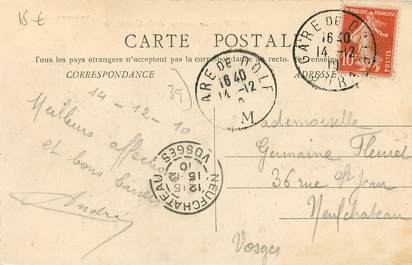 15 €
CARTE POSTALE
Tous les pays étrangers n'acceptent pas la correspondance au recto. se renseigner
CORRESPONDANCE
ADRESSE
GARE DE DOLE
16 40
14 -12
JURA
RÉPUBLIQUE FRANÇAISE
10
POSTES
ARE DE DOLE
16 40
14 -12
M
39
14-12-10
Meilleure affection
et bons baisers
André
NEUFCHATEAU
12 15
15 -12
10
VOSGES
Mademoiselle
Germaine Fleuret
36 rue St Jean
Neufchateau
Vosges